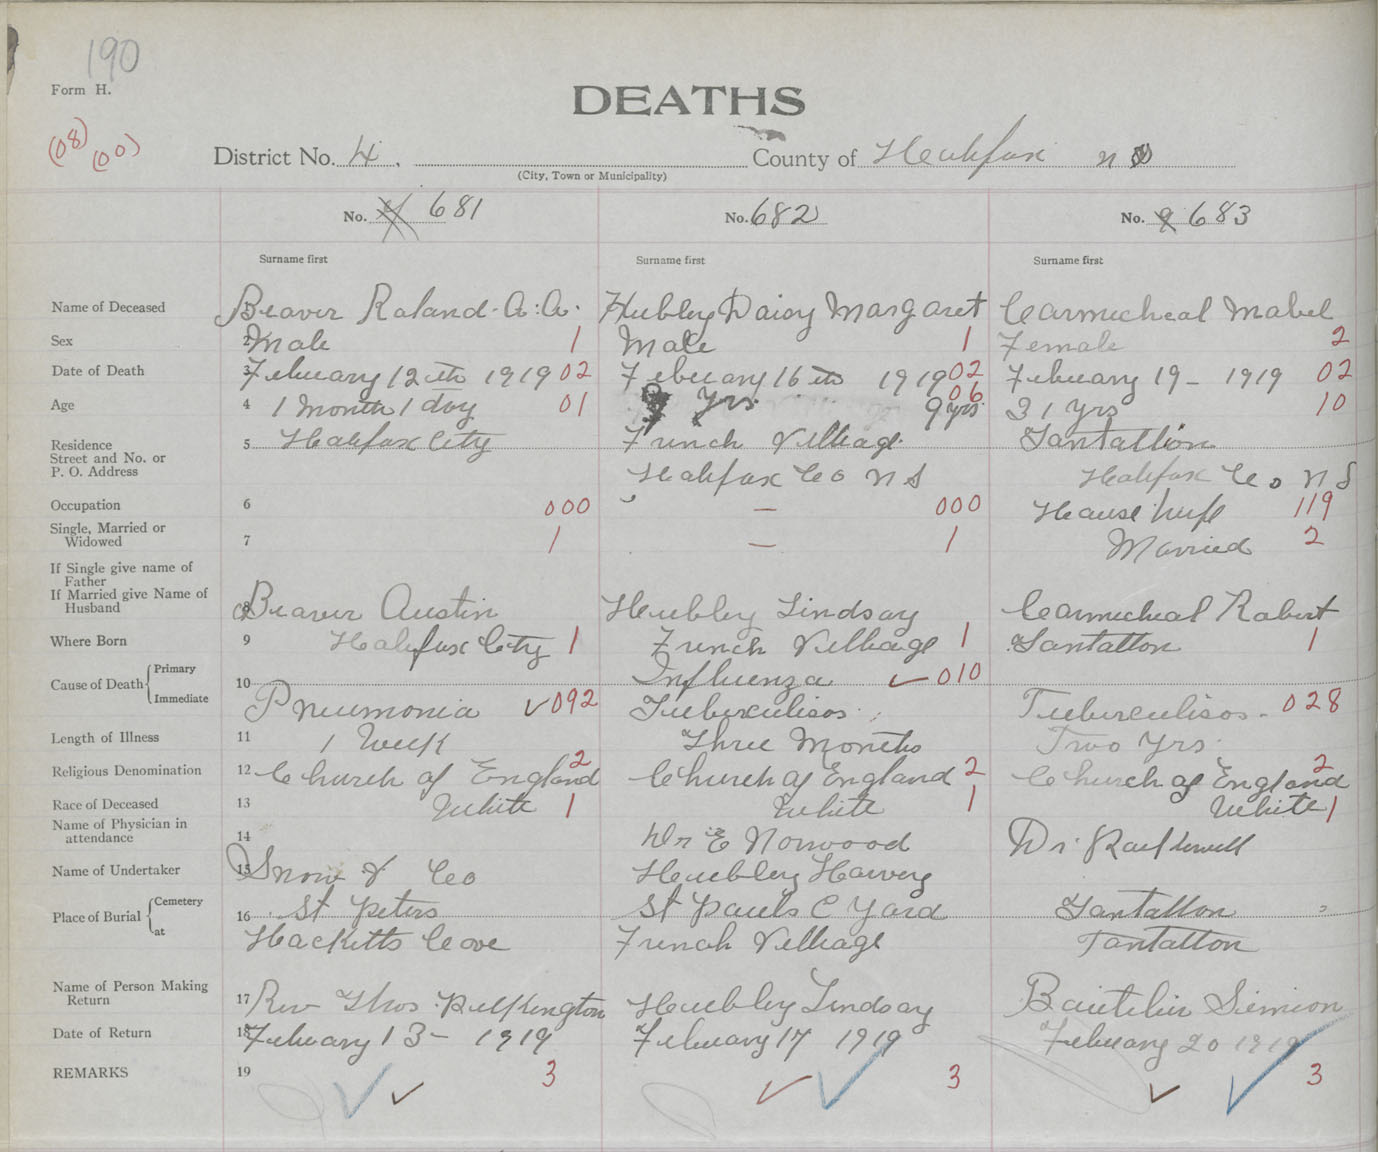 190
Form H.
DEATHS
(08) (00)
District No. 4. County of Halifax N S
(City, Town or Municipality)
No. 681 No. 682 No. 683
Surname first Surname first Surname first
Name of Deceased Beaver Roland. A. A. Hubley Daisy Margaret Carmicheal Mabel
Sex 2 Male 1 Male 1 Female 2
Date of Death 3 February 12th 1919 02 February 16th 1919 02 February 19 - 1919 02
Age 4 1 Month 1 day 01 9 yrs 9 yrs 06 31 yrs 10
Residence 5 Halifax City French Village Tantallon
Street and No. or
P. O. Address Halifax Co N S Halifax Co N S
Occupation 6 000 — 000 House wife 119
Single, Married or
Widowed 7 1 — 1 Married 2
If Single give name of
Father
If Married give Name of
Husband 8 Beaver Austin Hubley Lindsay Carmicheal Robert
Where Born 9 Halifax City 1 French Village 1 Tantallon 1
Cause of Death Primary 10 Influenza ✓ 010
Immediate Pneumonia ✓ 092 Tuberculisos Tuberculisos - 028
Length of Illness 11 1 Week Three Months Two Yrs
Religious Denomination 12 Church of England 2 Church of England 2 Church of England 2
Race of Deceased 13 White 1 White 1 White 1
Name of Physician in
attendance 14 Dr E Norwood Dr
Name of Undertaker 15 Snow & Co Hubley Harvey
Place of Burial Cemetery 16 St Peters St Pauls C Yard Tantallon
at Hacketts Cove French Village Tantallon
Name of Person Making
Return 17 Rev Thos Hubley Lindsay Simion
Date of Return 18 February 13 - 1919 February 17 1919 February 20 1919
REMARKS 19 3 3 3